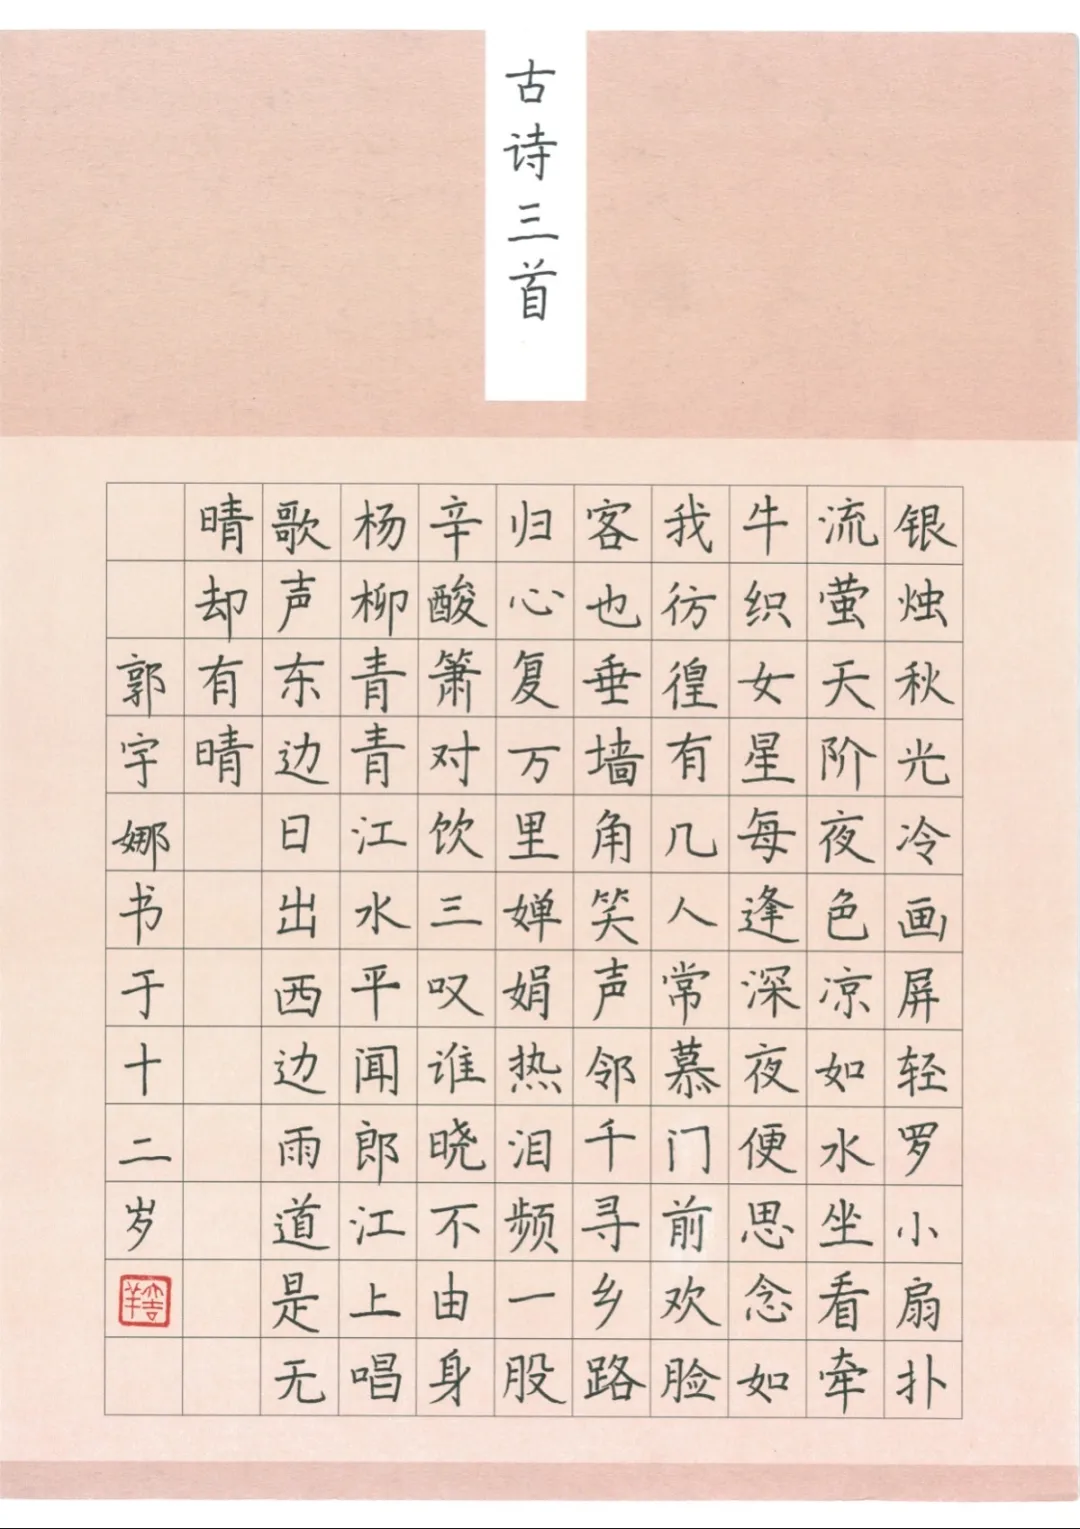 古诗三首
银烛秋光冷画屏轻罗小扇扑
流萤天阶夜色凉如水坐看牵
牛织女星每逢深夜便思念如
我彷徨有几人常慕门前欢脸
客也垂墙角笑声邻千寻乡路
归心复万里婵娟热泪频一股
辛酸箫对饮三叹谁晓不由身
杨柳青青江水平闻郎江上唱
歌声东边日出西边雨道是无
晴却有晴
郭宇娜书于十二岁